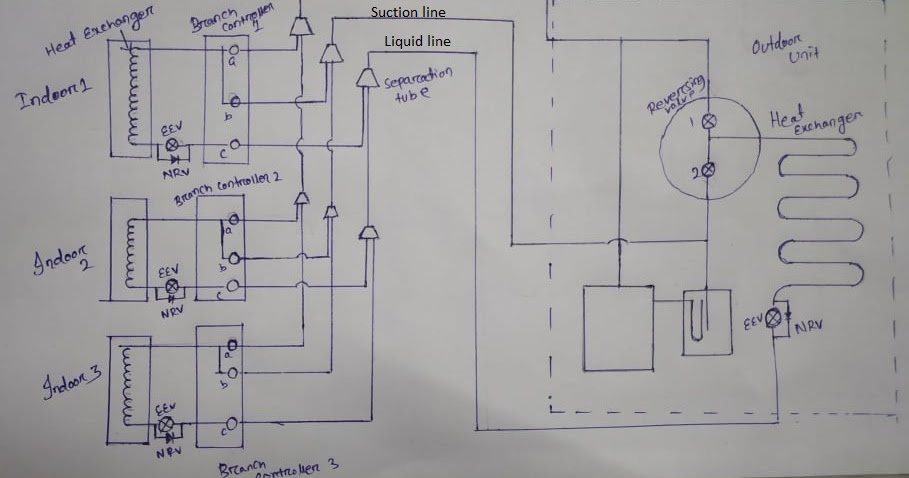 Suction line
Liquid line
Heat Exchanger
Branch
controller
1
Indoor1
a
b
c
EEV
NRV
Separation
tube
Outdoor
Unit
Reversing
valve
1
2
Heat
Exchanger
Branch controller 2
Indoor
2
a
b
c
EEV
NRV
EEV
NRV
Indoor 3
a
b
c
EEV
NRV
Branch
controller 3